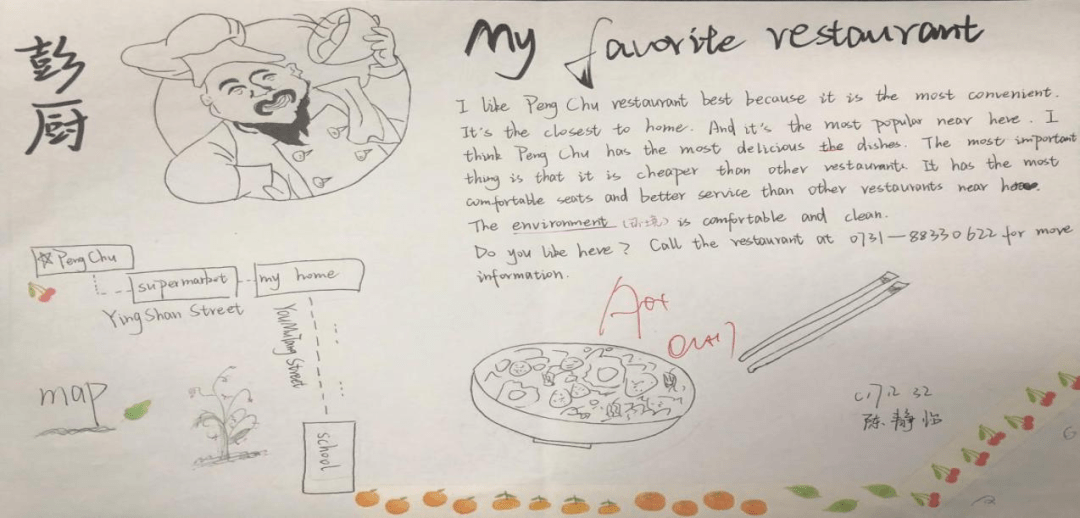 彭厨
My favorite restaurant
I like Peng Chu restaurant best because it is the most convenient.
It's the closest to home. And it's the most popular near here. I
think Peng Chu has the most delicious the dishes. The most important
thing is that it is cheaper than other restaurants. It has the most
comfortable seats and better service than other restaurants near
The environment (环境) is comfortable and clean.
Do you like here? Call the restaurant at 0731—88330622 for more
information.
Peng Chu
supermarket
my home
YingShan Street
Street
school
map
32
陈静怡